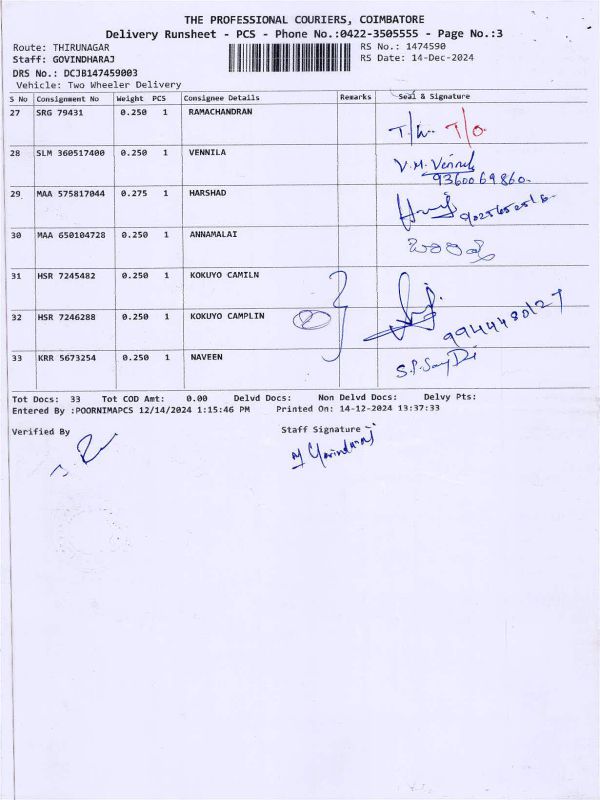 THE PROFESSIONAL COURIERS, COIMBATORE
Delivery Runsheet - PCS - Phone No.:0422-3505555 - Page No.:3
Route: THIRUNAGAR RS No.: 1474590
Staff: GOVINDHARAJ RS Date: 14-Dec-2024
DRS No.: DCJB147459003
Vehicle: Two Wheeler Delivery
S No Consignment No Weight PCS Consignee Details Remarks Seal & Signature
27 SRG 79431 0.250 1 RAMACHANDRAN
T/O
28 SLM 360517400 0.250 1 VENNILA V.M. Vennila
9360069860
29 MAA 575817044 0.275 1 HARSHAD
30 MAA 650104728 0.250 1 ANNAMALAI
31 HSR 7245482 0.250 1 KOKUYO CAMILN
32 HSR 7246288 0.250 1 KOKUYO CAMPLIN 2 9944480127
33 KRR 5673254 0.250 1 NAVEEN
Tot Docs: 33 Tot COD Amt: 0.00 Delvd Docs: Non Delvd Docs: Delvy Pts:
Entered By :POORNIMAPCS 12/14/2024 1:15:46 PM Printed On: 14-12-2024 13:37:33
Verified By Staff Signature :-
M Govindaraj